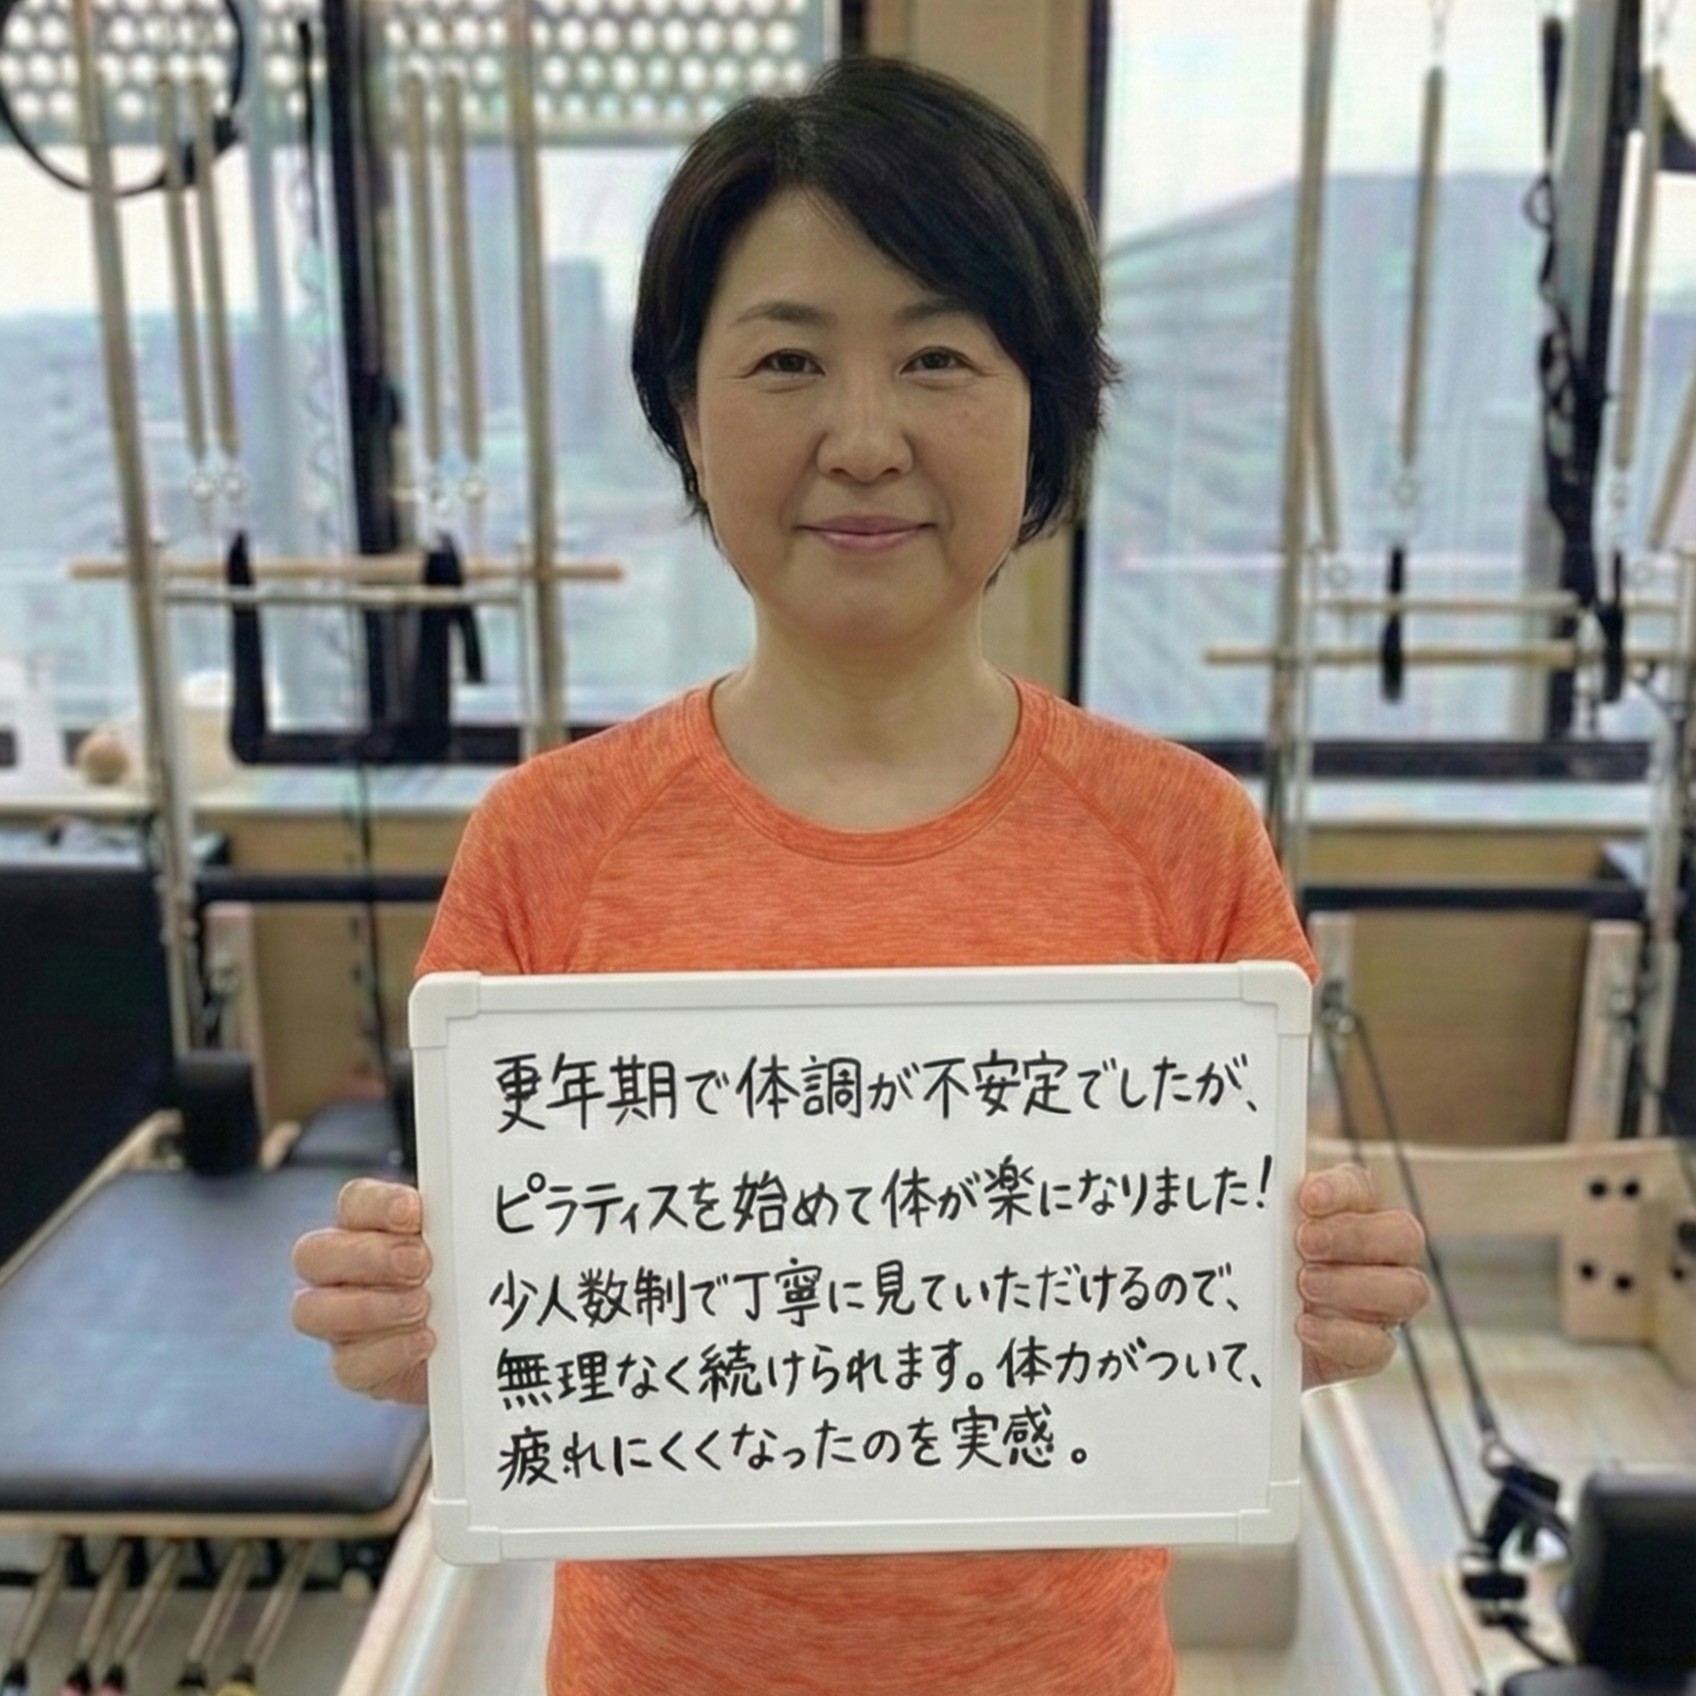 更年期で体調が不安定でしたが、
ピラティスを始めて体が楽になりました!
少人数制で丁寧に見ていただけるので、
無理なく続けられます。体力がついて、
疲れにくくなったのを実感。